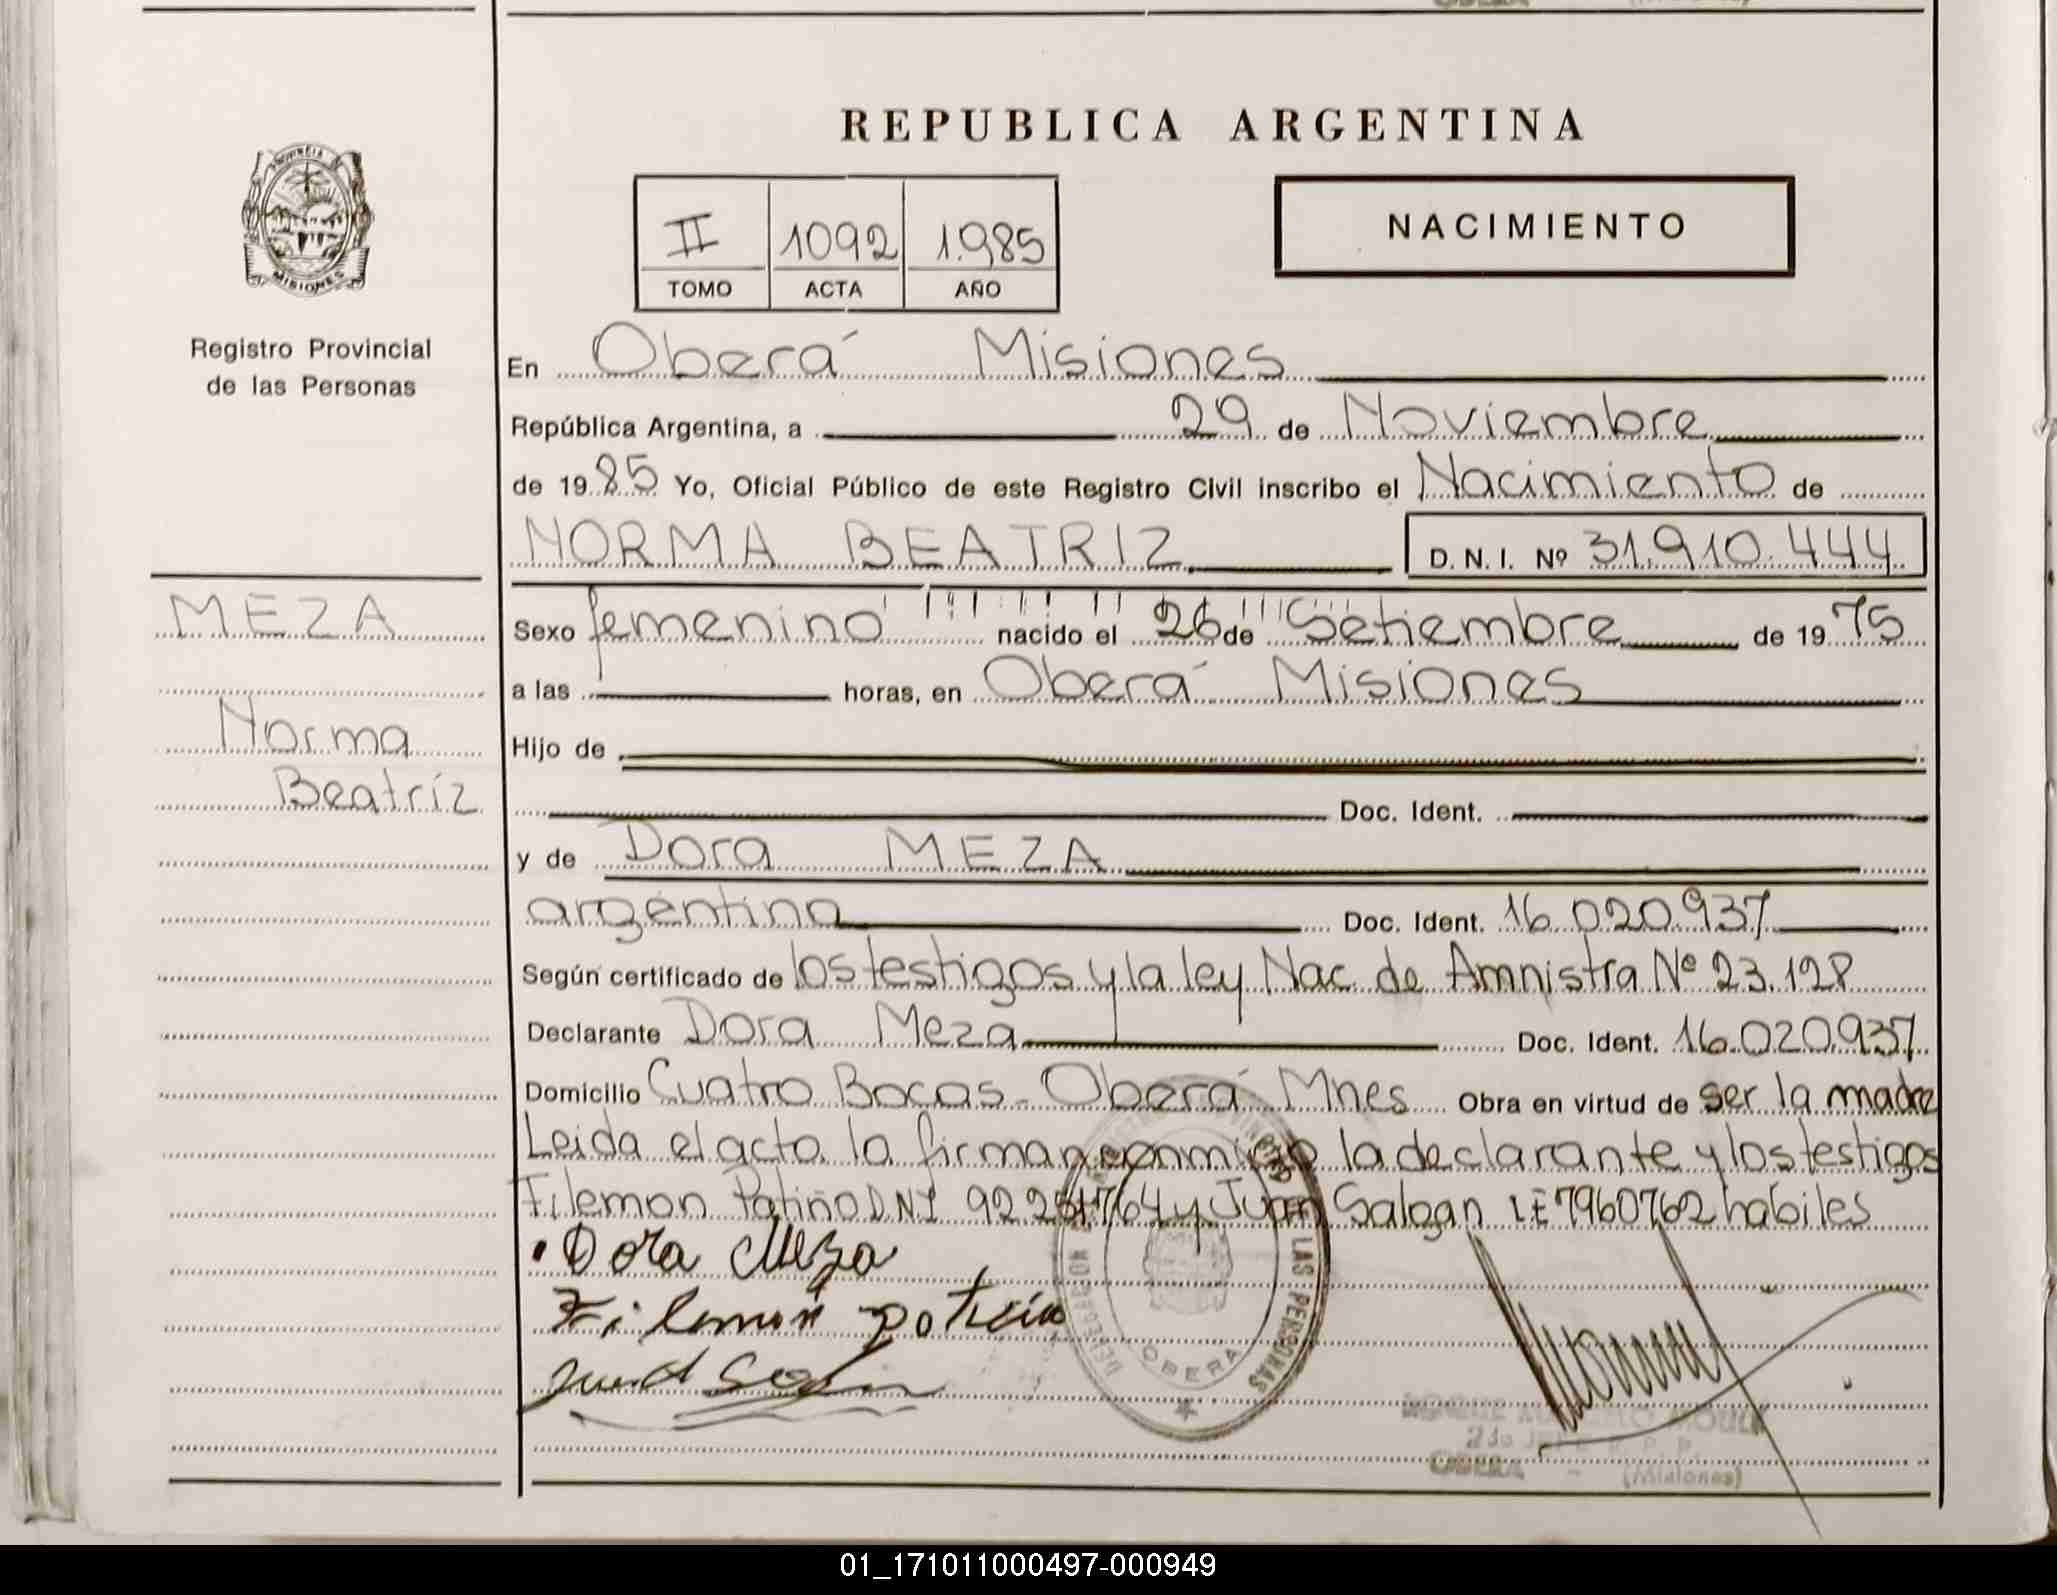 REPUBLICA ARGENTINA
PROVINCIA
MISIONES
II 1092 1.985
TOMO ACTA AÑO
NACIMIENTO
Registro Provincial
de las Personas
MEZA
Norma
Beatríz
En Oberá Misiones
República Argentina, a 29 de Noviembre
de 1985 Yo, Oficial Público de este Registro Civil inscribo el Nacimiento de
NORMA BEATRIZ D.N.I. Nº 31.910.444
Sexo femenino nacido el 26 de Setiembre de 1975
a las horas, en Oberá Misiones
Hijo de
Doc. Ident.
y de Dora MEZA
argentina Doc. Ident. 16.020.937
Según certificado de los testigos y la ley Nac. de Amnistra Nº 23.128
Declarante Dora Meza Doc. Ident. 16.020.937
Domicilio Cuatro Bocas - Oberá Mnes Obra en virtud de ser la madre
Leida el acta la firman conmigo la declarante y los testigos
Filemon Patiño DNI y Juan Salogan LE 7960762 habiles
Dora Meza
Filemon
LAS PERSONAS
OBERA
2do
OBERA - (Misiones)
01_171011000497-000949